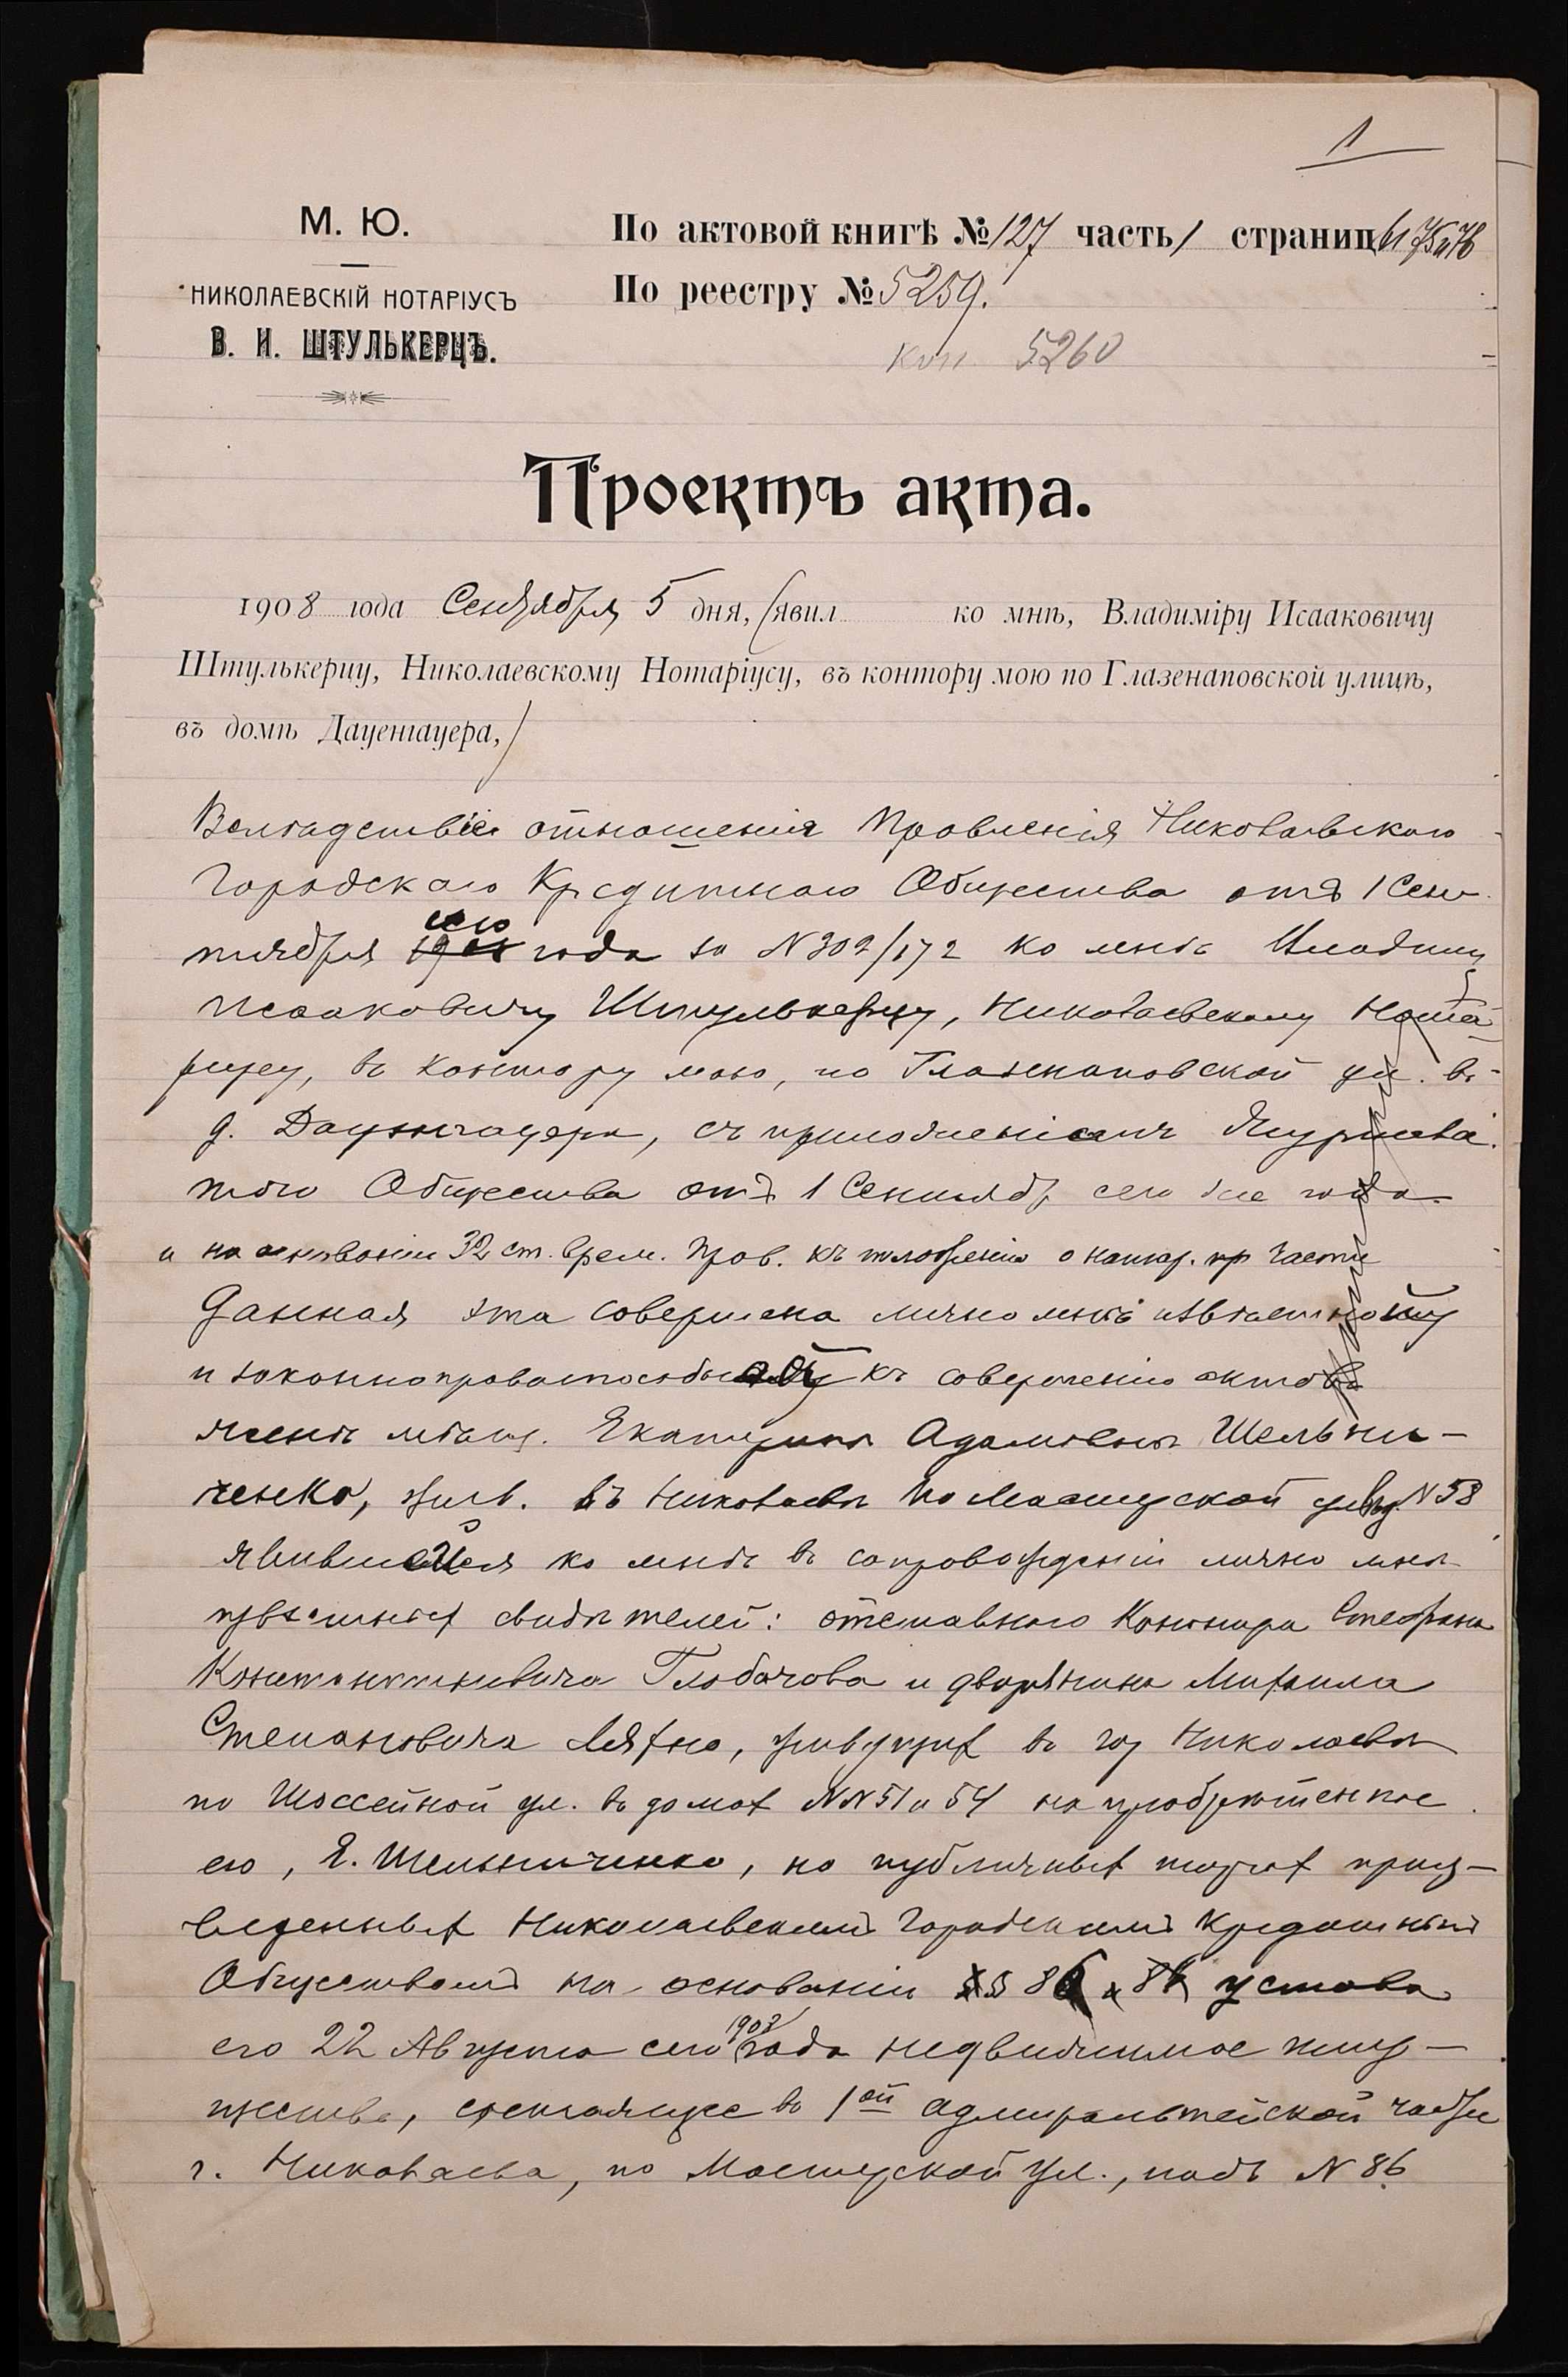 1
М. Ю.
НИКОЛАЕВСКІЙ НОТАРІУСЪ
В. И. ШТУЛЬКЕРЦЪ.
По актовой книгѣ № 127 часть 1 страницы 75 и 76
По реестру № 5259.
коп. 5260
Проектъ акта.
1908 года Сентября 5 дня, (явил ко мнѣ, Владиміру Исааковичу
Штулькерцу, Николаевскому Нотаріусу, въ контору мою по Глазенаповской улицѣ,
въ домѣ Дауенгауера,)
Вслѣдствіе отношенія Правленія Николаевскаго
Городского Кредитнаго Общества отъ 1 Сен
тября сего года за N 302/172 ко мнѣ
Исааковичу Штулькерцу, Николаевскому Нота
ріусу, въ контору мою, по Глазенаповской ул. въ
д. Дауенгауера, съ приложеніемъ Журнала
того Общества отъ 1 Сентябр сего же года
и на основаніи 32 ст. врем. прав. къ положенію о нотар. части
Данная эта совершена лично мнѣ извѣстной
и законноправоспособной къ совершенію актовъ
женѣ мѣщ. Екатеринѣ Адамовнѣ Шельни-
ченко, жив. въ Николаевѣ по Мѣщанской ул. въ д. N 58
явившейся ко мнѣ въ сопровожденіи лично мнѣ
извѣстныхъ свидѣтелей: отставного Кононира Стефана
Константиновича Глобачова и дворянина Михаила
Степановича Ляхно, живущихъ въ гор Николаевѣ
по Шоссейной ул. въ домахъ NN 51 и 54 на пріобрѣтенное
ею, Е. Шельниченко, на публичныхъ торгахъ произ-
веденныхъ Николаевскимъ Городскимъ Кредитнымъ
Обществомъ на основаніи § 86 устава
его 22 Августа сего 1908 года недвижимое иму-
щество, состоящее въ 1ой адмиралтейской части
г. Николаева, по ул., подъ N 86